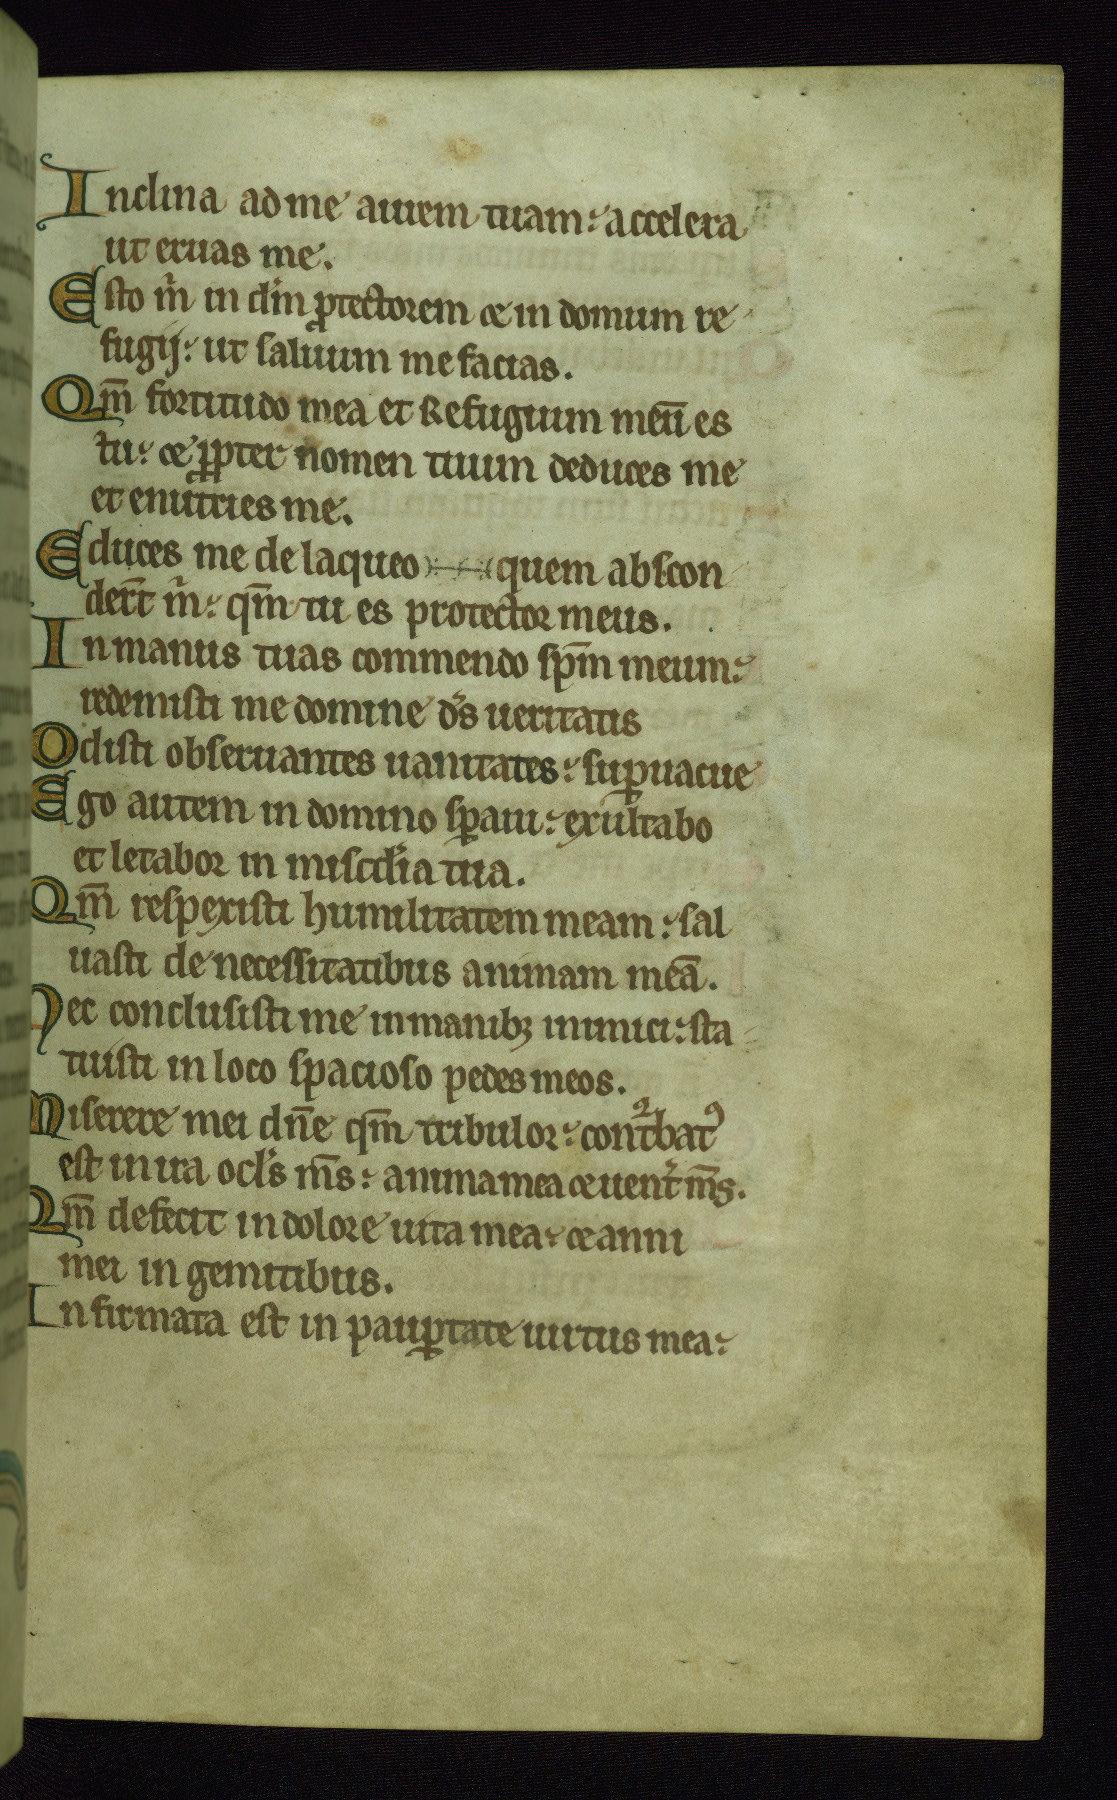 Inclina ad me aurem tuam: accelera
ut eruas me.
Esto m̃ in dm̃ ꝓtectorem ⁊ in domum re
fugij: ut saluum me facias.
Qm̃ fortitudo mea et Refugium meũ es
tu: ⁊ ꝓpter nomen tuum deduces me
et enutries me.
Educes me de laqueo quem abscon
der̃t m̃: qm̃ tu es protector meus.
In manus tuas commendo sp̃m meum:
redemisti me domine ds̃ ueritatis
Odisti obseruantes uanitates: suꝑuacue
Ego autem in domino sꝑaui: exultabo
et letabor in miscd̃ia tua.
Qm̃ respexisti humilitatem meam: sal
uasti de necessitatibus animam meã.
Nec conclusisti me in manibꝫ inimici: sta
tuisti in loco spacioso pedes meos.
Miserere mei dñe qm̃ tribulor: contᷓbatꝰ
est in ira ocl̃s m̃s: anima mea ⁊ uent̃ m̃s.
Qm̃ defecit in dolore uita mea: ⁊ anni
mei in gemitibus.
Infirmata est in pauꝑtate uirtus mea: